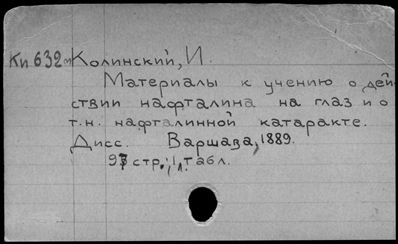 Ки 632м Колинский, И.
Материалы к учению о дей-
ствии нафталина на глаз и о
т.н. нафталинной катаракте.
Дисс. Варшава, 1889.
97 стр., 1 табл.